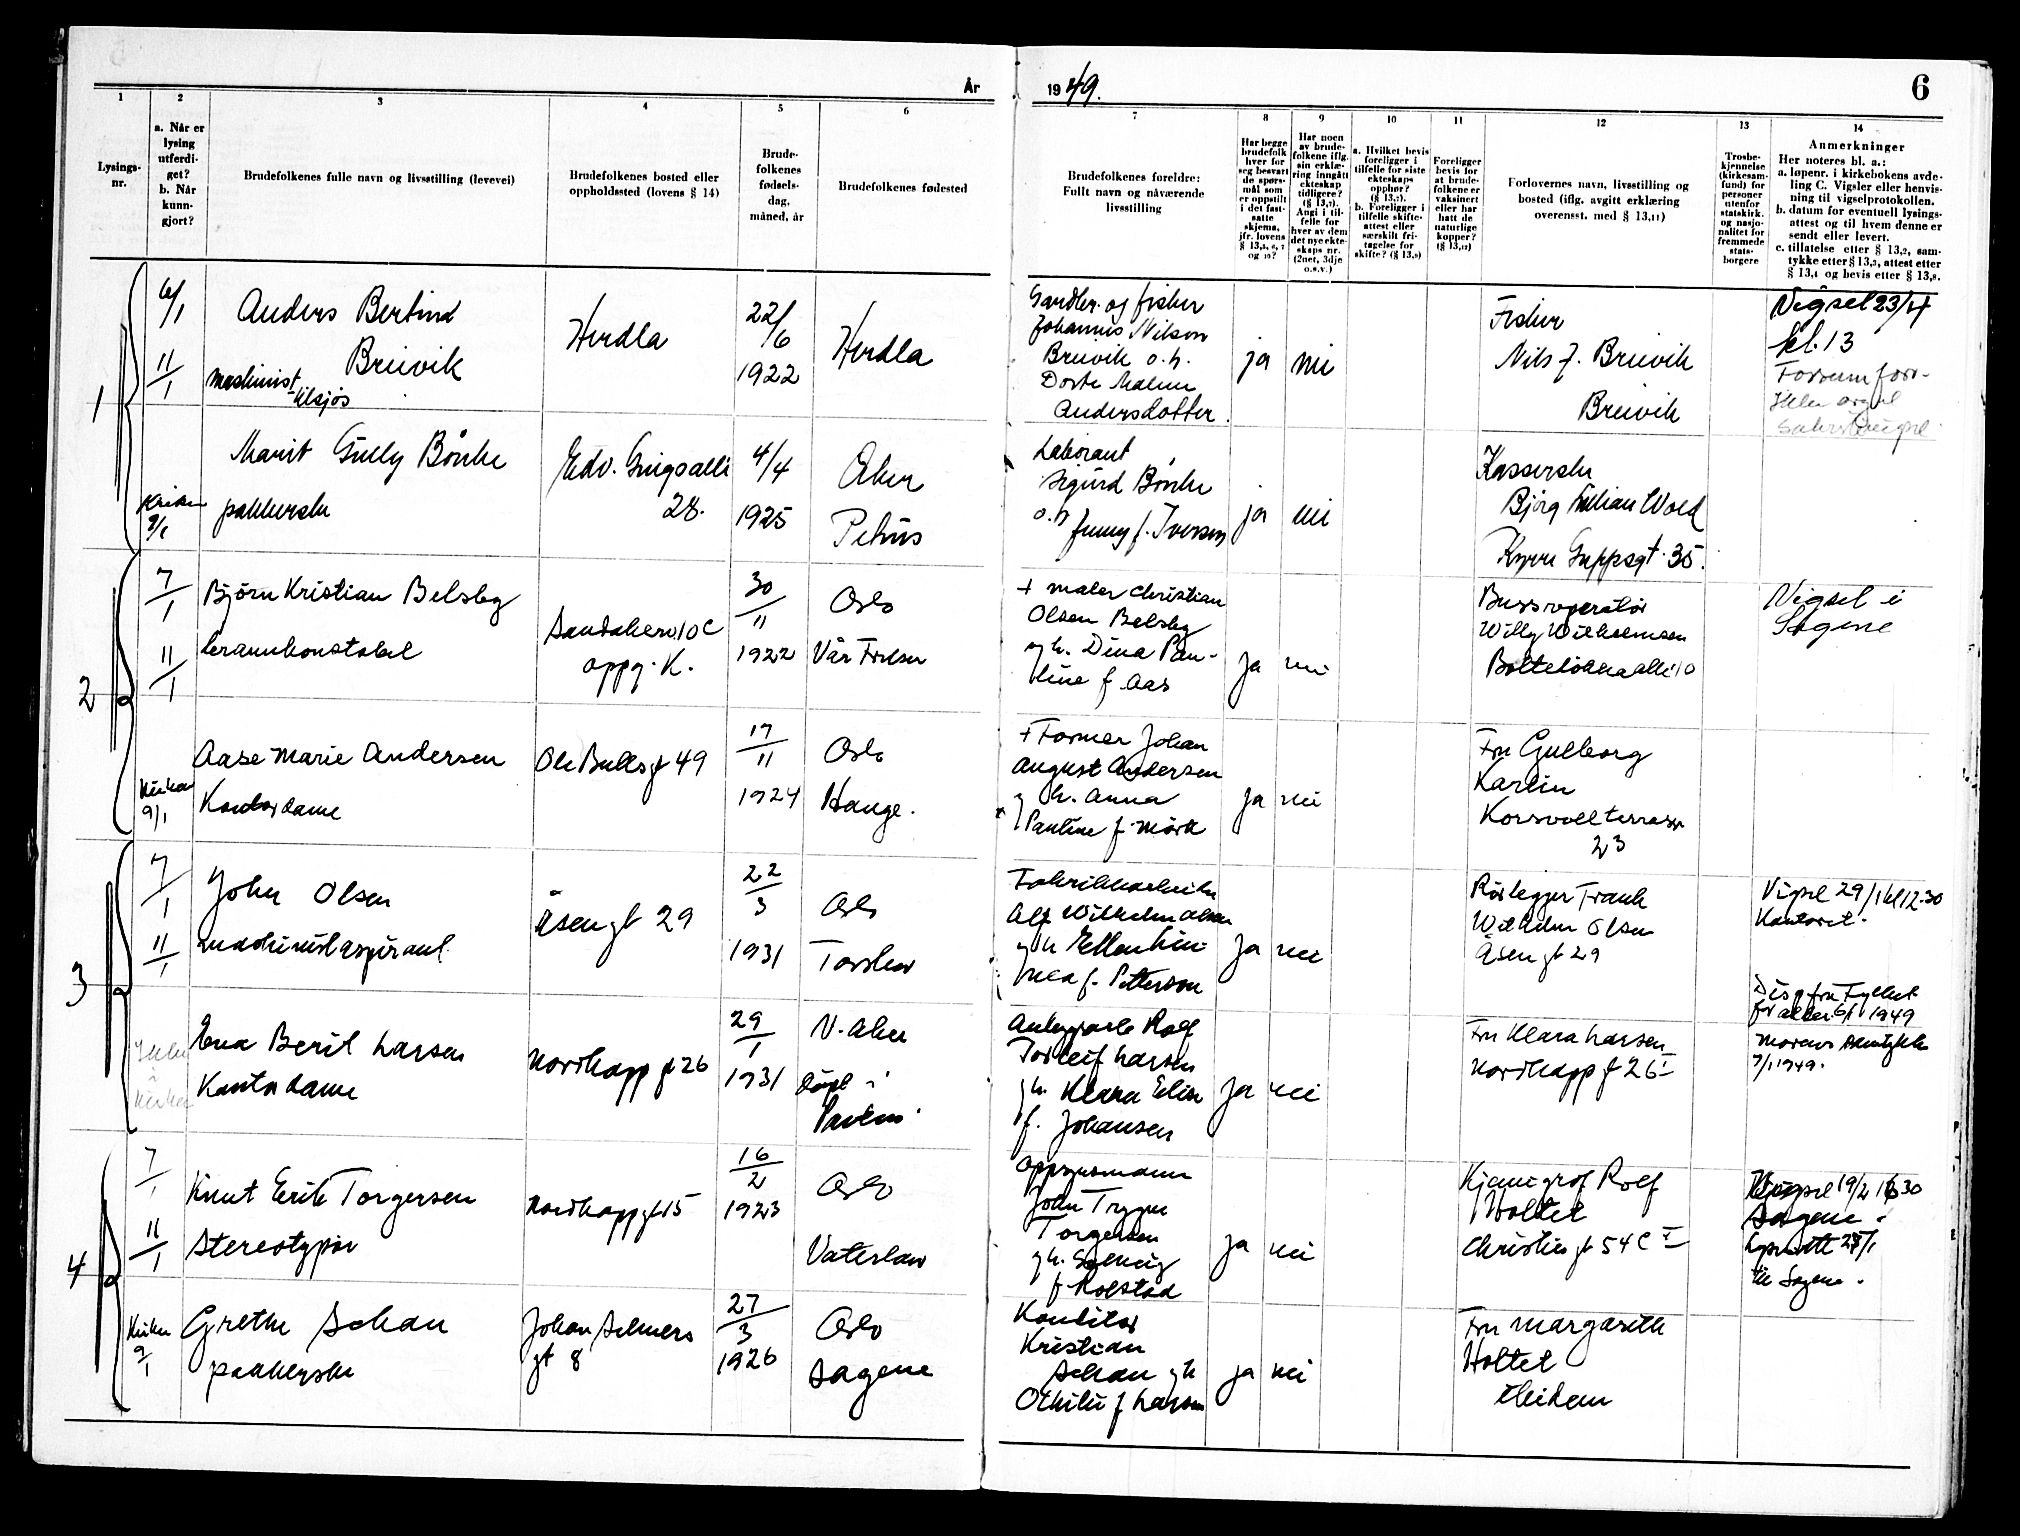 År
1949.
6
1
2
3
4
5
6
7
8
9
10
11
12
13
14
Lysings-
nr.
a. Når er
lysing
utferdi-
get?
b. Når
kunn-
gjort?
Brudefolkenes fulle navn og livsstilling (levevei)
Brudefolkenes bosted eller
oppholdssted (lovens § 14)
Brude-
folkenes
fødsels-
dag,
måned, år
Brudefolkenes fødested
Brudefolkenes foreldre:
Fullt navn og nåværende
livsstilling
Har begge
brudefolk
hver for
seg besvart
de spørs-
mål som
er oppstilt
i det fast-
satte
skjema,
jfr. lovens
§ 13,5, 6, 7
og 10?
Har noen
av brude-
folkene iflg.
sin erklæ-
ring inngått
ekteskap
tidligere?
(§ 13,7).
Angi i til-
felle for
hver av dem
det nye ekte-
skaps nr.
(2net, 3dje
o.s.v.)
a. Hvilket bevis
foreligger i
tilfelle for siste
ekteskaps
opphør?
(§ 13,7).
b. Foreligger i
tilfelle skifte-
attest eller
særskilt fri-
tagelse for
skifte? (§ 13,9)
Foreligger
bevis for
at brude-
folkene er
vaksinert
eller har
hatt de
naturlige
kopper?
(§ 13,12)
Forlovernes navn, livsstilling og
bosted (iflg. avgitt erklæring
overensst. med § 13,11)
Trosbe-
kjennelse
(kirkesam-
fund) for
personer
utenfor
statskirk.
og nasjo-
nalitet for
fremmede
stats-
borgere
Anmerkninger
Her noteres bl. a.:
a. løpenr. i kirkebokens avde-
ling C. Vigsler eller henvis-
ning til vigselprotokollen.
b. datum for eventuell lysings-
attest og til hvem denne er
sendt eller levert.
c. tillatelse etter § 13,2, sam-
tykke etter § 13,3, attest etter
§ 13,4 og bevis etter § 13,8.
1
6/1
11/1
Anders Bertind
Breivik
maskinist
tilsjøs
Herdla
22/6
1922
Herdla
Gardbr. og fisker
Johannes Nilsen
Breivik o.h.
Dorte Malene
Andersdotter.
ja
nei
Fisker
Nils J. Breivik
Breivik
Vigsel 23/4
kl. 13
Kirken
9/1
Marit Gully Bönke
pakkerske
Edv. Griegsallé
28.
4/4
1925
Aker
Petrus
Laborant
Sigurd Bönke
o.h.
Jenny f. Iversen
ja
nei
Kasserske
Bjørg Lillian Wold
Kyrre Greppsgt. 35.
2
7/1
11/1
Björn Kristian Belsby
brannkonstabel
Sandakerv 10 C
oppg. K.
30/11
1922
Oslo
Vår Frelser
+ maler Christian
Olsen Belsby
og h. Dina Pau-
line f. Aas
ja
nei
Bussoperatör
Willy Wilhelmsen
Bolteløkka allé 10
Vigsel i
Sagene
Kirken
9/1
Aase Marie Andersen
Kontordame
Ole Bullsgt 49
17/11
1924
Oslo
Hauge.
+ Former Johan
August Andersen
og h. Anna
Pauline f. Mörk
ja
nei
Fru Gulborg
Karlin
Korsvollterrasse
23
3
7/1
11/1
John Olsen
maskinistaspirant
Åsengt 29
22/3
1931
Oslo
Torshov
Fabrikkarbeider
Alf Wilhelm Olsen
og h Ellen Lin-
nea f. Petterson
ja
nei
Rörlegger Frank
Wilhelm Olsen
Åsengt 29
Vigsel 29/1 kl 12.30
Kontoret.
Disp fra Fylket
for alder 6/1 1949
Morens samtykke
7/1 1949.
Ikke
i
kirken
Eva Berit Larsen
Kontordame
Nordkappgt 26
29/1
1931
V. Aker
döpt i
Paulus
Rolf
Torleif Larsen
og h. Klara Elise
f. Johansen
ja
nei
Fru Klara Larsen
Nordkappgt 26 I
4
7/1
11/1
Knut Erik Torgersen
Stereotypör
Nordkappgt 15
16/2
1923
Oslo
Vaterland
Oppsynsmann
John Trygve
Torgersen
og h. Solveig
f. Rolstad
ja
nei
Kjemigraf Rolf
Holtet
Christiesgt 54 C I
Vigsel 19/2 16.30
Sagene.
Lyseatt 28/1
til Sagene.
Kirken
9/1
Grethe Schau
pakkerske
Johan Selmers
gt 8
27/3
1926
Oslo
Sagene
Konditor
Kristian
Schau og h
Othilie f. Larsen
ja
nei
Fru Margarethe
Holtet